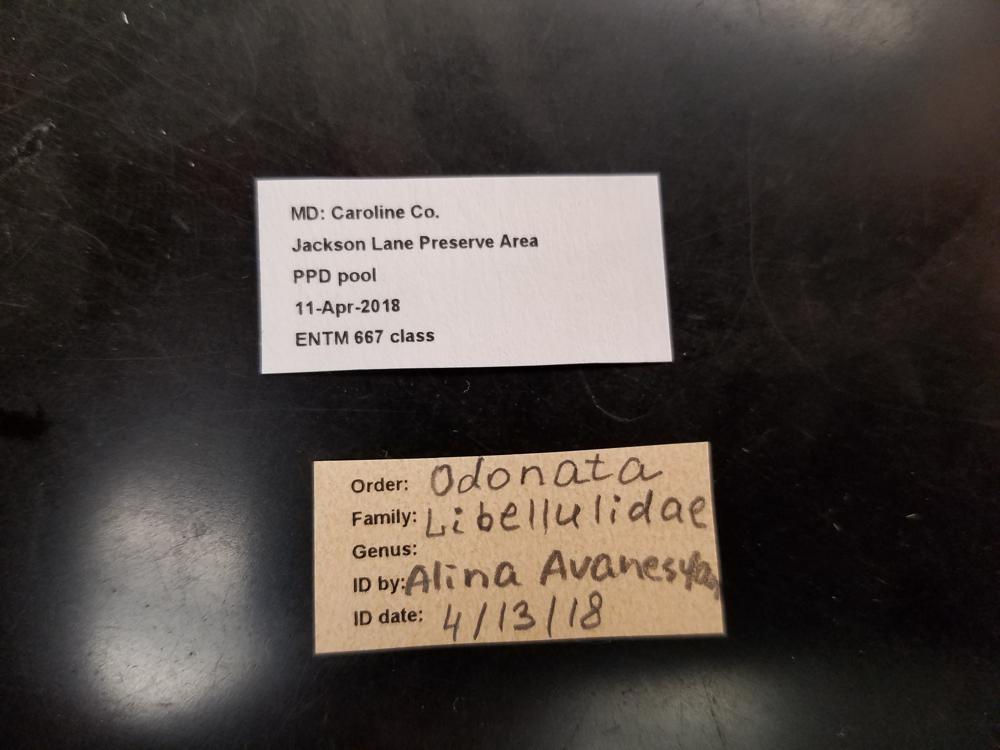 MD: Caroline Co.
Jackson Lane Preserve Area
PPD pool
11-Apr-2018
ENTM 667 class
Order: Odonata
Family: Libellulidae
Genus:
ID by: Alina Avanesyan
ID date: 4/13/18